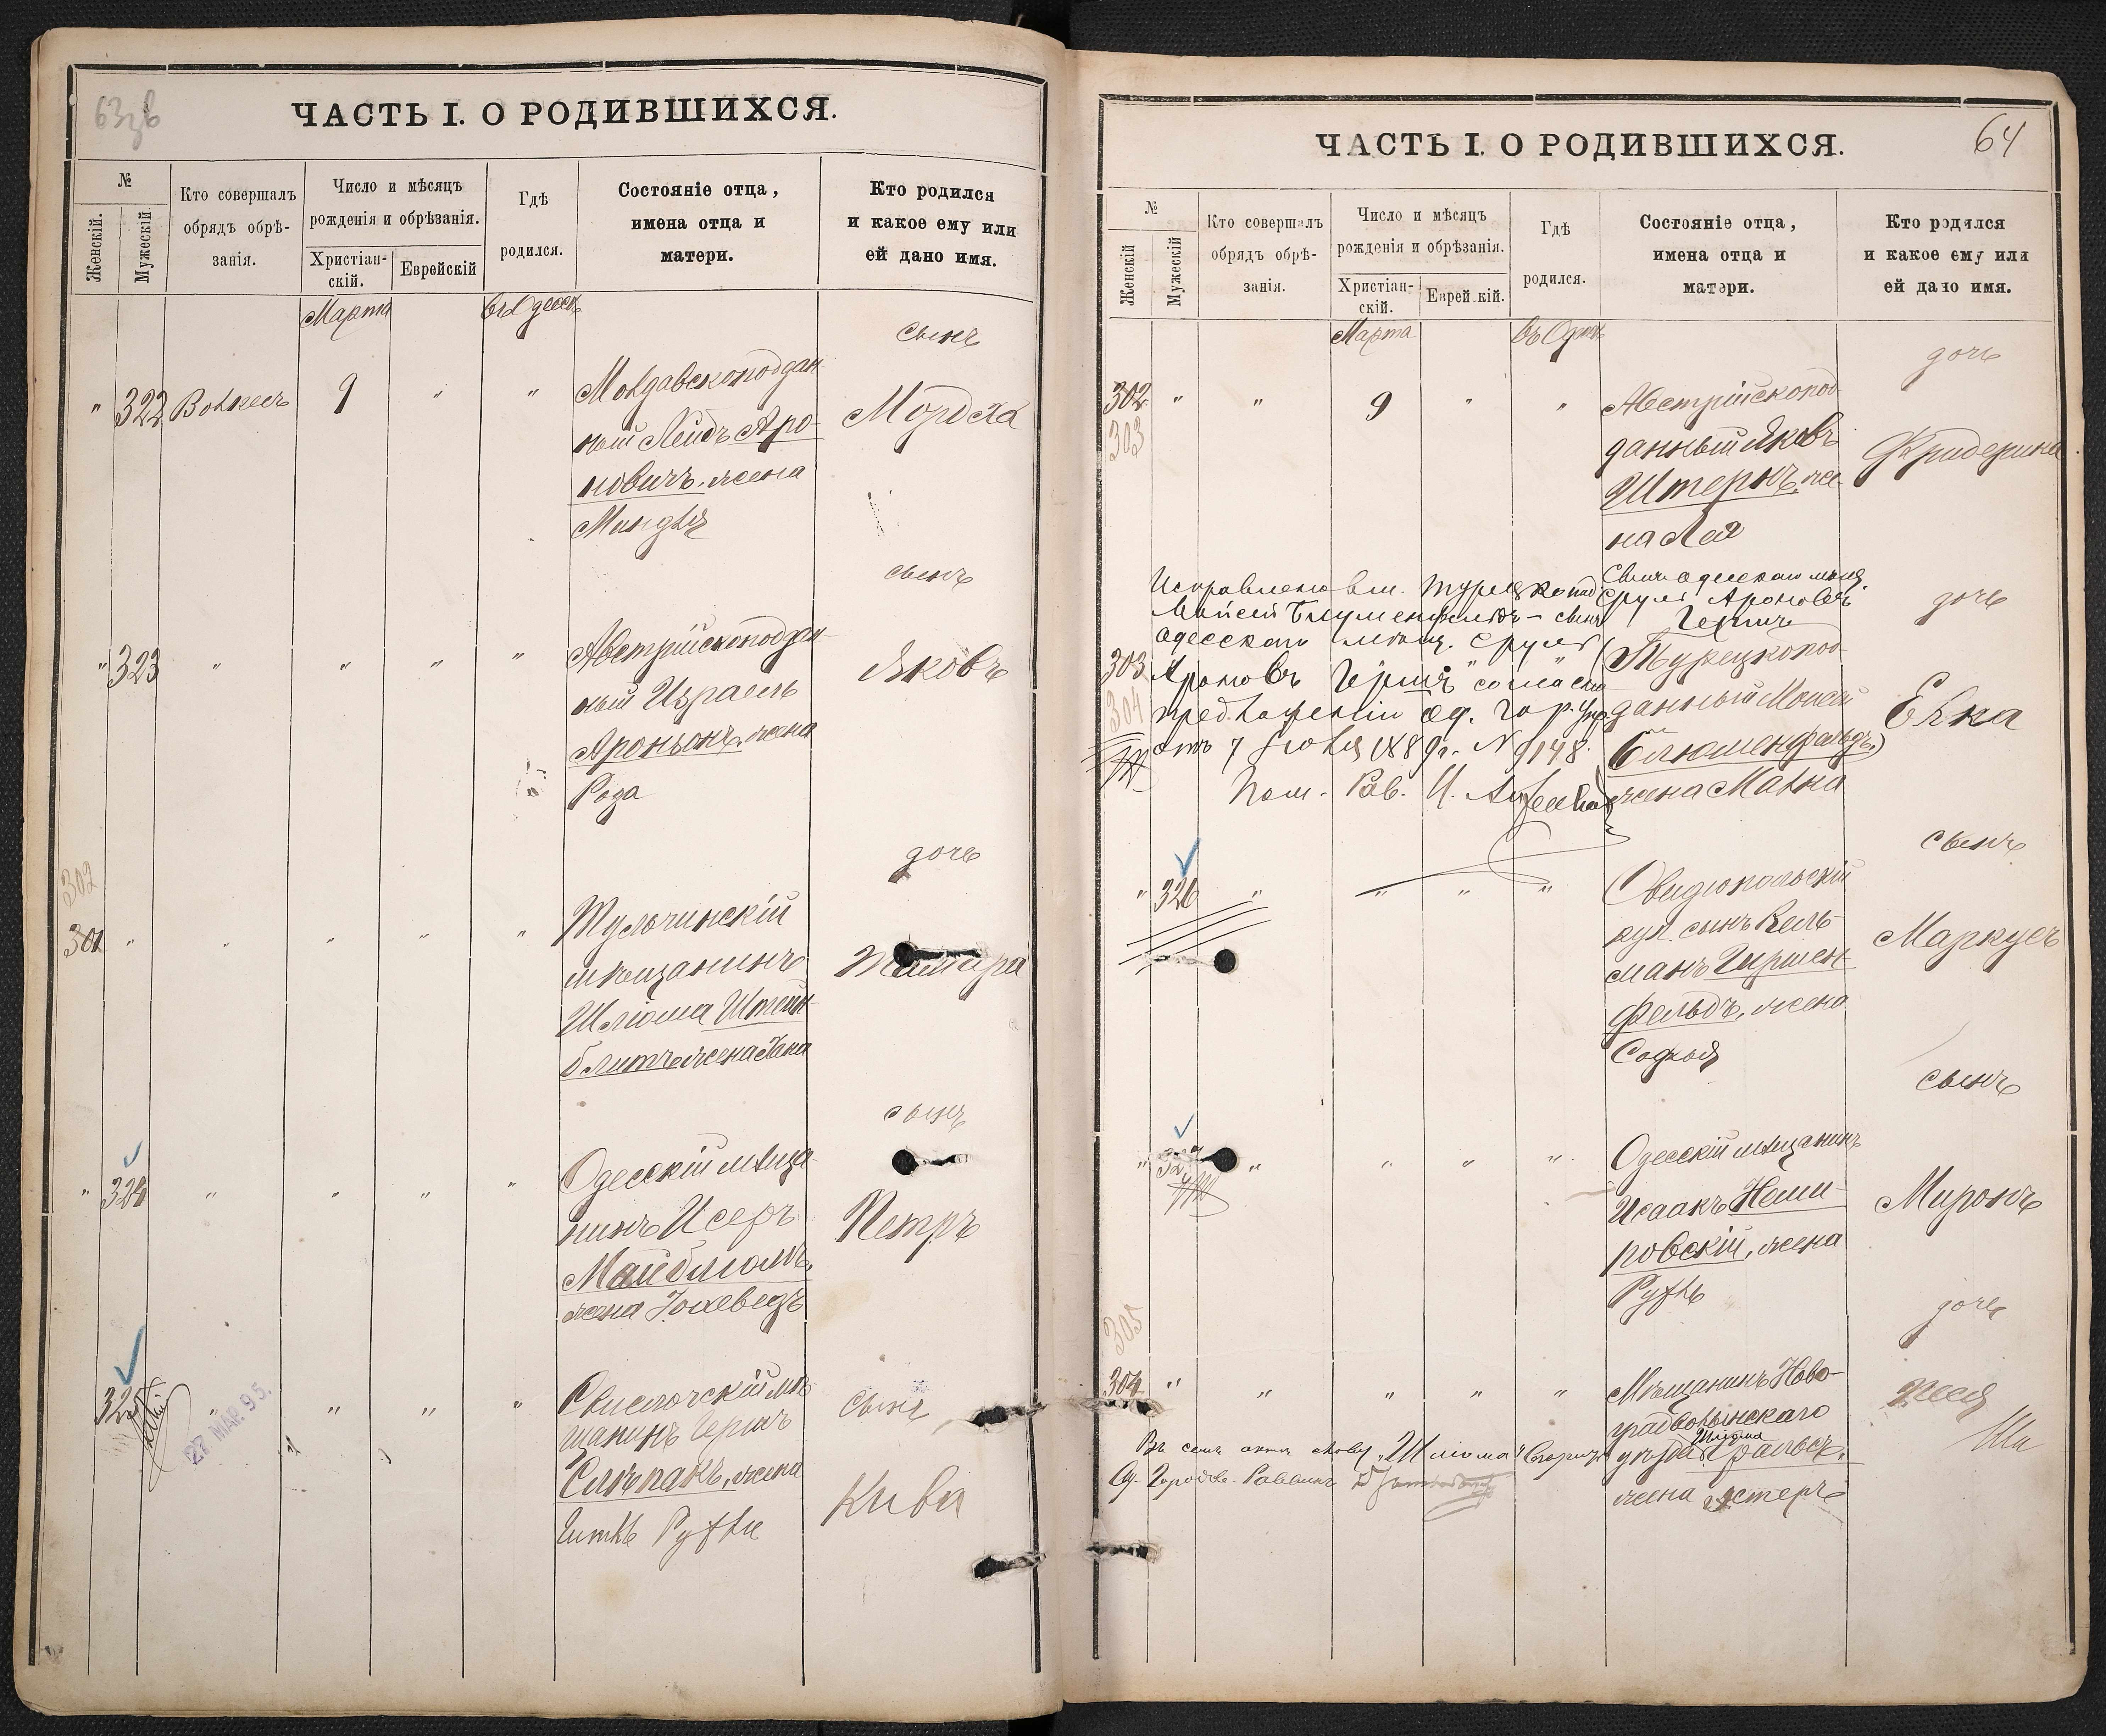 63 об
ЧАСТЬ I. О РОДИВШИХСЯ.
№
Женскій.
Мужескій
Кто совершалъ
обрядъ обрѣ-
занія.
Число и мѣсяцъ
рожденія и обрѣзанія.
Христіан-
скій.
Еврейскій
Гдѣ
родился.
Состояніе отца,
имена отца и
матери.
Кто родился
и какое ему или
ей дано имя.
Марта
въ Одессѣ
сынъ
" 322 9 " "
Молдавскоподдан
ный Лейдъ Аро-
новичъ, жена
Миндля
Мордха
сынъ
" 323 " " " "
Австрійскоподдан-
ный Израель
Ароньонъ, жена
Роза
Яковъ
дочь
302
301 " " " " "
Тульчинскій
мѣщанинъ
Шліома Штейн-
блитъ жена Хана
сынъ
" 324 " " " "
Одесскій мѣща-
нинъ Исеръ
Майблюмъ,
жена Іохеведъ
Петръ
325 " " " "
27 МАР. 95.
Свислочскій мѣ
щанинъ Гершъ
Слѣпакъ, жена
Гитль Руфль
сынъ
Кива
64
ЧАСТЬ I. О РОДИВШИХСЯ.
№
Женскій
Мужескій
Кто совершалъ
обрядъ обрѣ-
занія.
Число и мѣсяцъ
рожденія и обрѣзанія.
Христіан-
скій.
Еврей.кій.
Гдѣ
родился.
Состояніе отца,
имена отца и
матери.
Кто родился
и какое ему или
ей дано имя.
Марта
дочь
302 " " 9 " "
303
Австрійскопод
данный Яковъ
Штернъ, же
на Лея
Фридерика
Исправлено вм. Турецкопод.
Мойсей Блуменфельдъ – сынъ
одесскаго мѣщ. Сруля
Ароновъ Гершъ" согласно
предложенію Од. Гор. Упр.
отъ 7 Іюля 1889 г. № 9148.
Пом. Рав.
Сынъ одесскаго мѣщ.
Сруля Ароновъ
Гершъ
дочь
303
304
(Турецкопод-
данный Моисей
Блюменфельдъ,)
жена Малка
Елка
сынъ
" 326 " " " "
Овидіопольскій
куп. сынъ Кель-
манъ Гиршен-
фельдъ, жена
Софья
Маркусъ
сынъ
" " " " "
Одесскій мѣщанинъ
Исаакъ Неми-
ровскій, жена
Руфль
Миронъ
305
дочь
304 " " " " "
Мѣщанинъ Ново-
градволынскаго
уѣзда Шліома
жена Эстеръ
Песя
Въ семъ актѣ слову „Шліома"
Од. Городск. Раввинъ